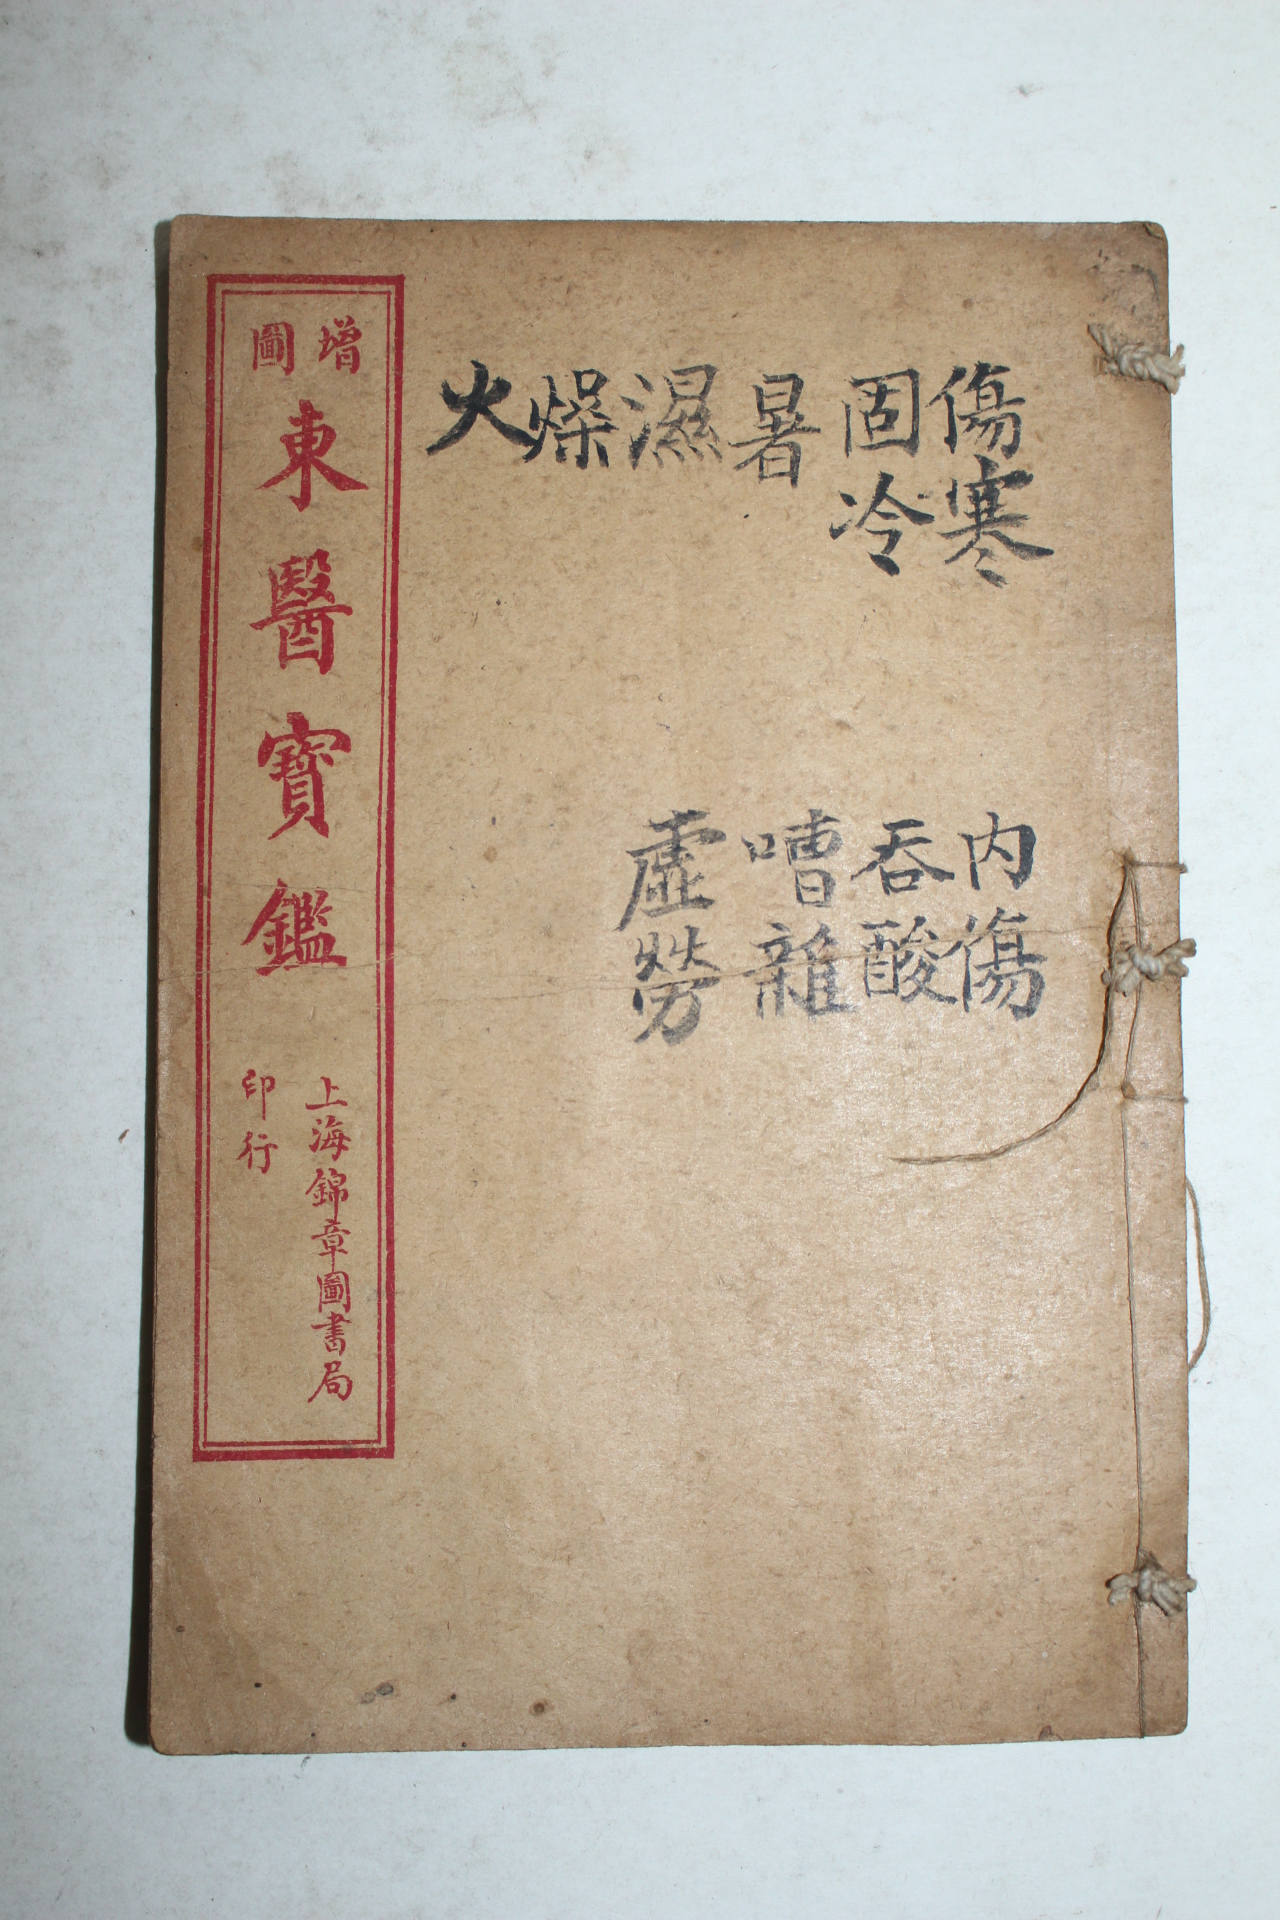 傷寒
固冷
暑
濕
燥
火
內傷
吞酸
嘈雜
虛勞
增圖
東醫寶鑑
上海錦章圖書局
印行